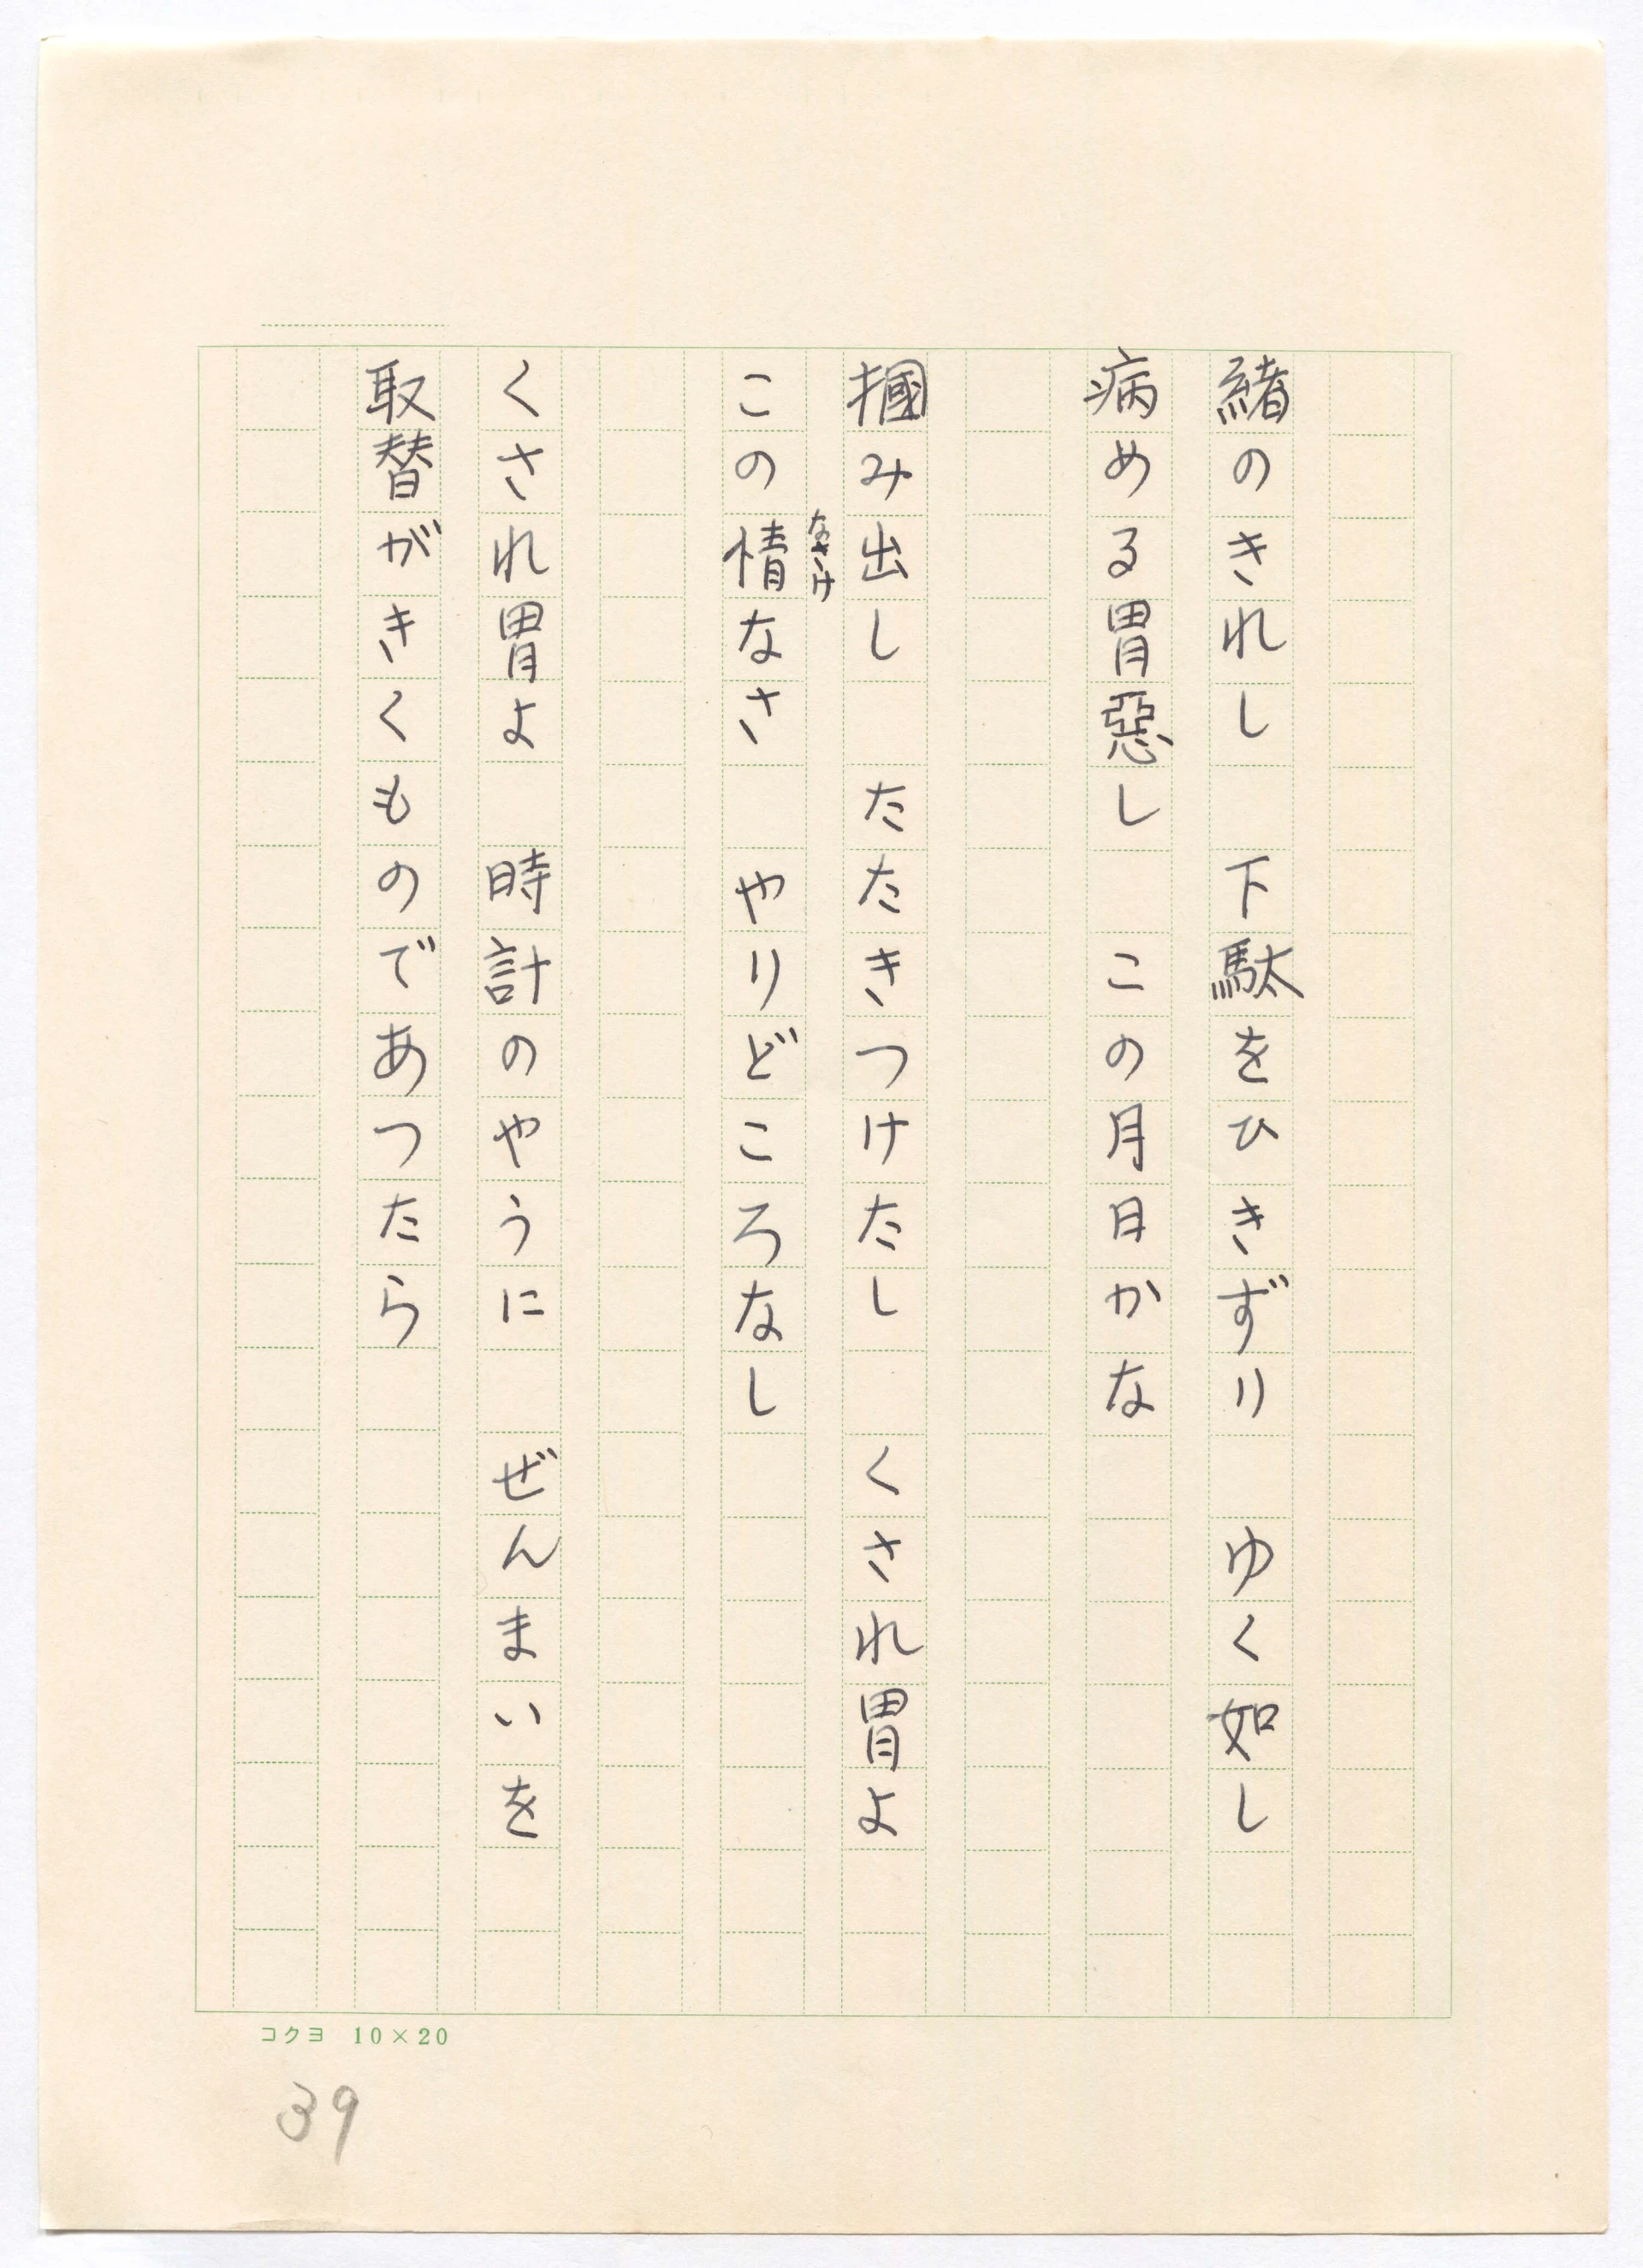 緒のきれし　下駄をひきずり　ゆく如し
病める胃惡し　この月日かな
摑み出し　たたきつけたし　くされ胃よ
この情なさ　やりどころなし
なさけ
くされ胃よ　時計のやうに　ぜんまいを
取替がきくものであつたら
コクヨ　10×20
39